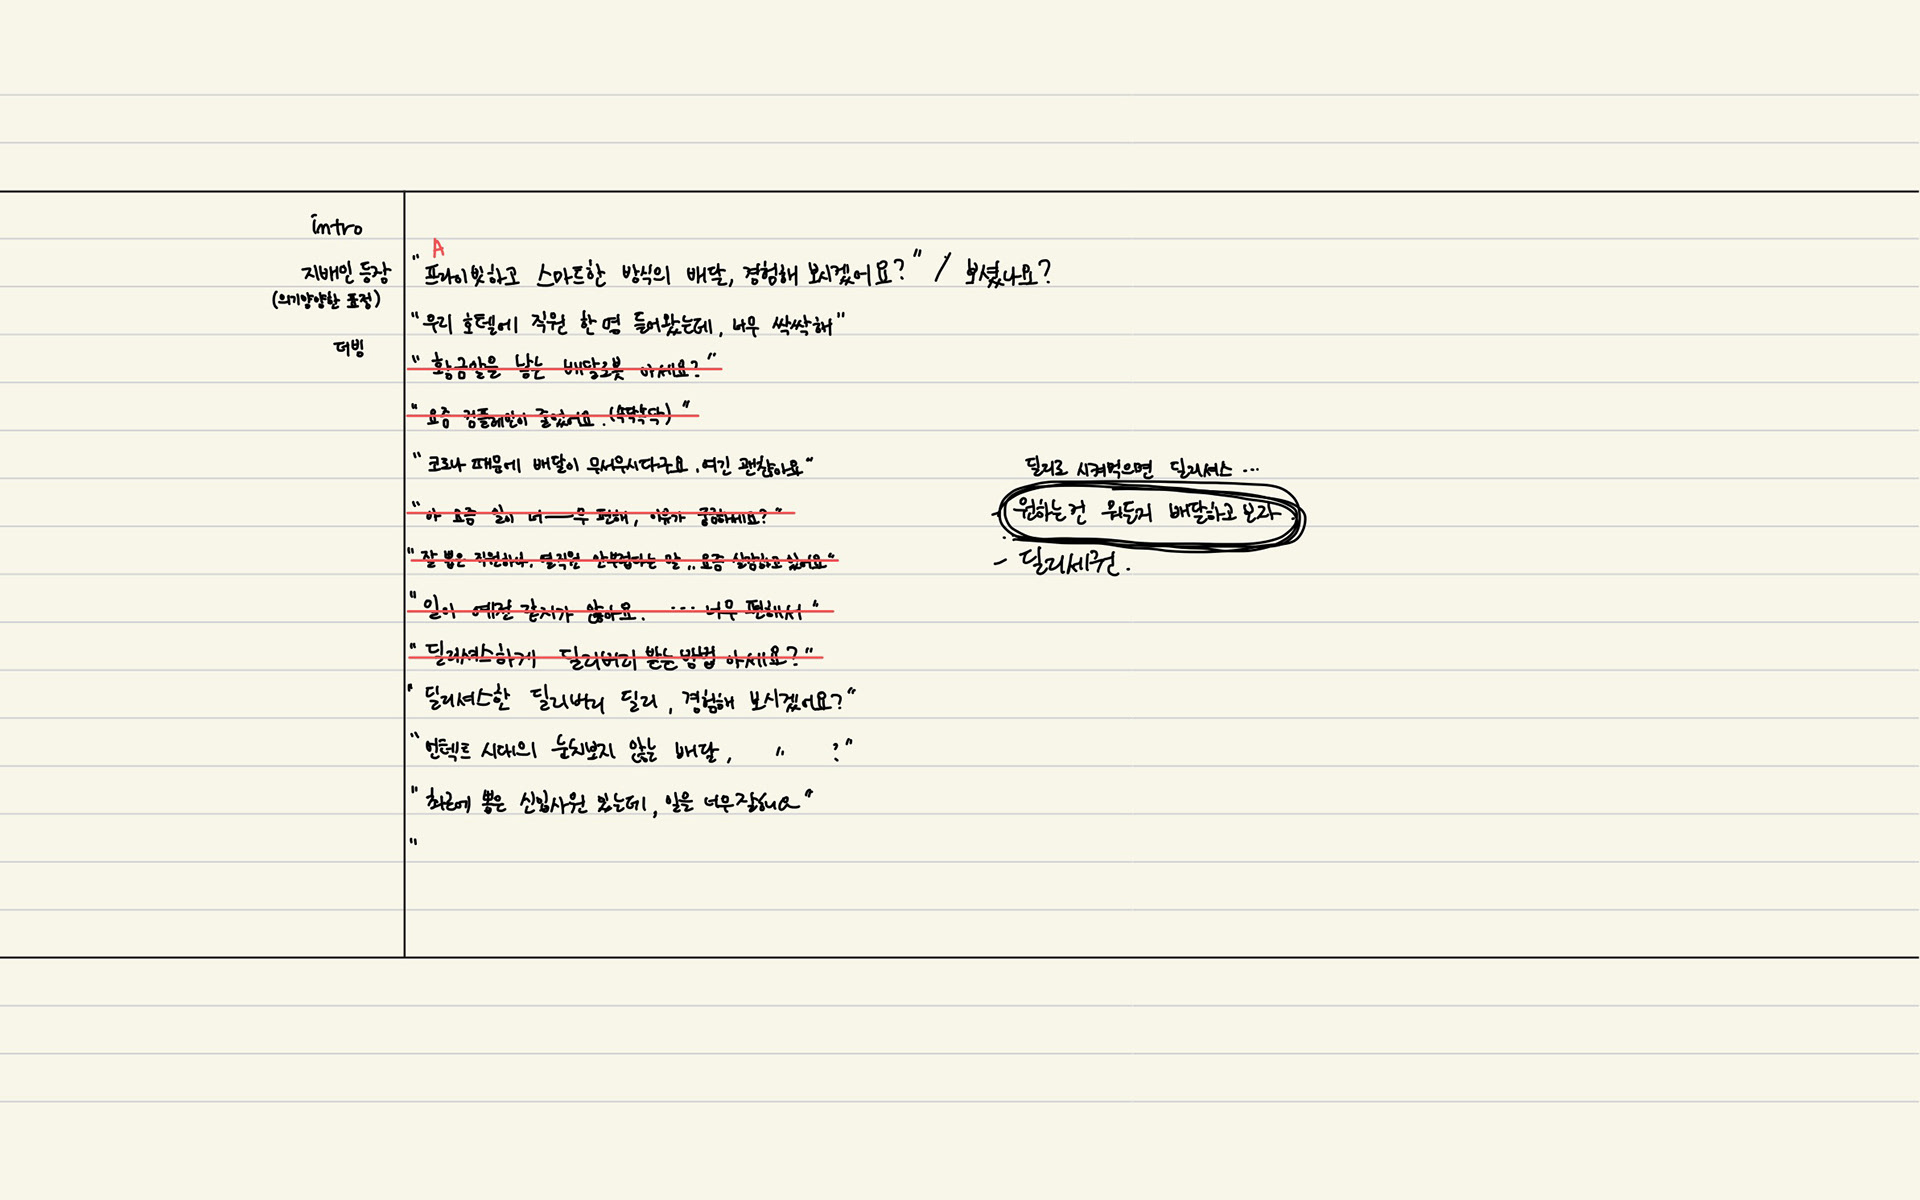 intro
A
지배인 등장
"프라이빗하고 스마트한 방식의 배달, 경험해 보시겠어요?" / 보셨나요?
(의기양양한 표정)
"우리 호텔에 직원 한 명 들어왔는데, 너무 싹싹해"
더빙
"황금알을 낳는 배달로봇 아세요?"
"요즘 컴플레인이 줄었어요. (속닥속닥)"
"코로나 때문에 배달이 무서우시다구요, 여긴 괜찮아요"
"아 요즘 일이 너——무 편해, 이유가 궁금하세요?"
"잘 뽑은 직원하나, 열직원 안부럽다는 말.. 요즘 실감하고 있어요"
"일이 예전 같지가 않아요. ... 너무 편해서"
"딜리셔스하게 딜리버리 받는 방법 아세요?"
"딜리셔스한 딜리버리 딜리, 경험해 보시겠어요?"
"언텍트 시대의 눈치보지 않는 배달, " ?"
"최근에 뽑은 신입사원 있는데, 일을 너무 잘해요"
"
딜리로 시켜먹으면 딜리셔스 ...
- 원하는건 뭐든지 배달하고 보라
- 딜리세권.